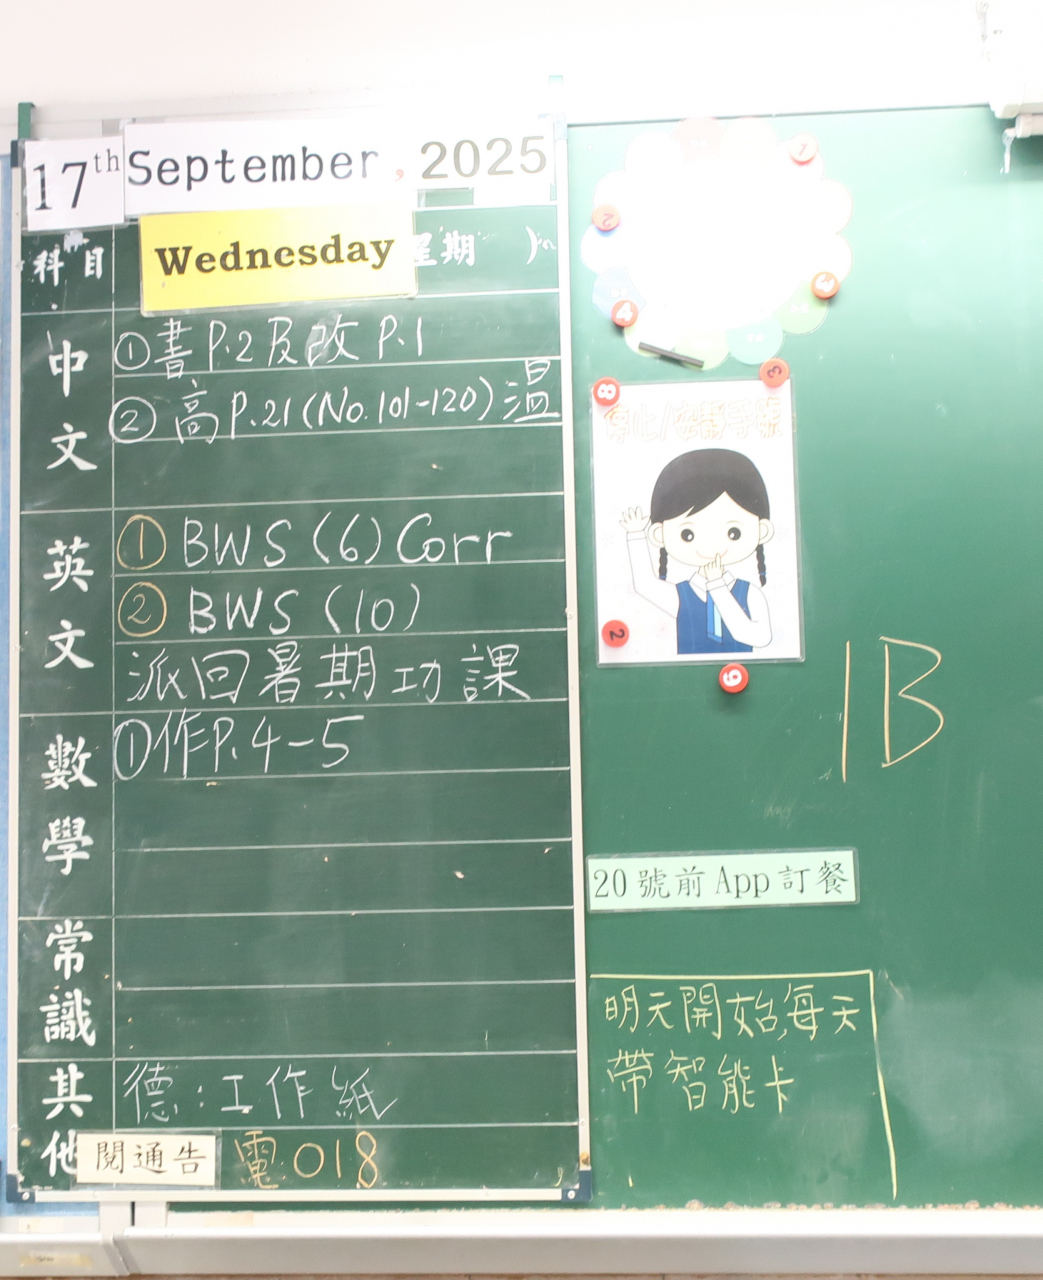 17th September, 2025
Wednesday 星期
科目
中文
①書P.2及改P.1
②高P.21(No.101-120)溫
英文
①BWS(6)Corr
②BWS(10)
派回暑期功課
數學
①作P.4-5
常識
其他
德:工作紙
閱通告 電018
停止/安靜手號
1B
20號前App訂餐
明天開始每天
帶智能卡